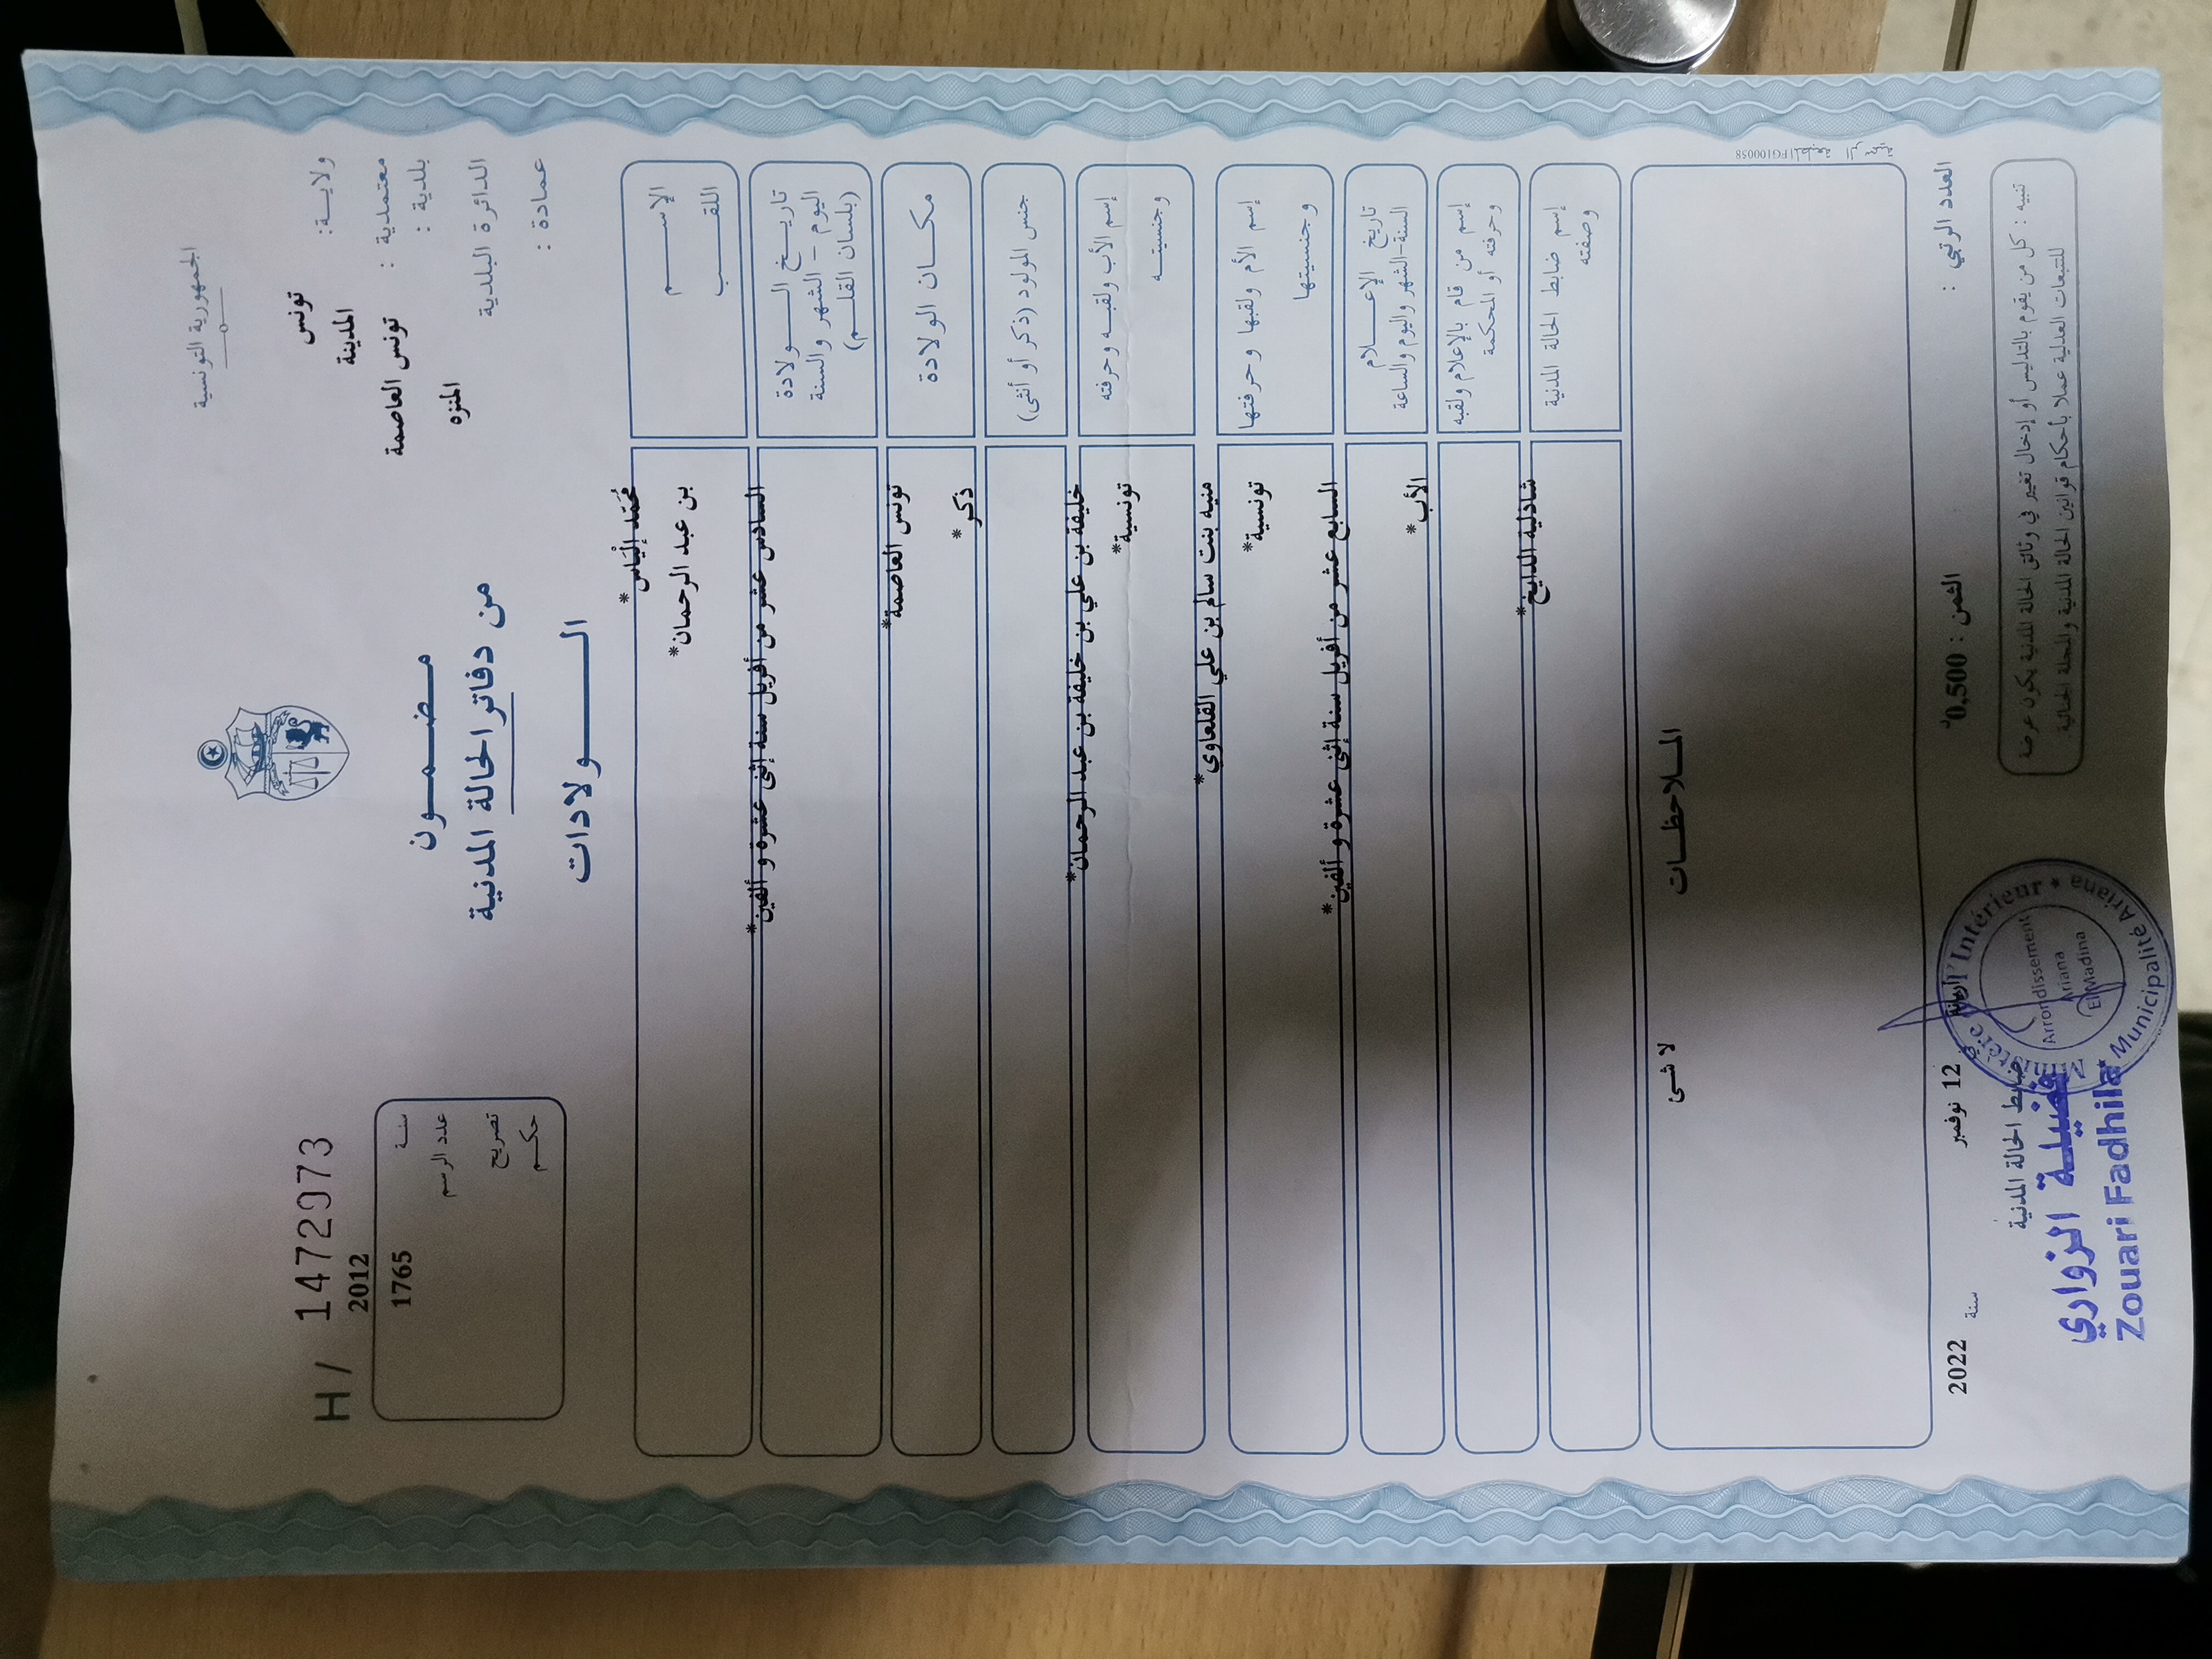 الجمهورية التونسية
ولايـــة: تونس
معتمدية : المدينة
بلدية : تونس العاصمة
الدائرة البلدية : المنزه
عمادة :
H/ 1472973
سنة 2012
عدد الرسم 1765
تصريح
حكم
مضمون
من دفاتر الحالة المدنية
الـولادات
الإسم مُحَمّد إِلْيَاس*
اللقب بن عبد الرحمان*
تاريخ الولادة
اليوم - الشهر والسنة
(بلسان القلم)
السادس عشر من أفريل سنة إثنى عشرة و ألفين*
مكان الولادة تونس العاصمة*
جنس المولود (ذكر أو أنثى) ذكر*
إسم الأب ولقبه وحرفته خليفة بن علي بن خليفة بن عبد الرحمان*
وجنسيته تونسية*
إسم الأم ولقبها وحرفتها منيه بنت سالم بن علي القلعاوي*
وجنسيتها تونسية*
تاريخ الإعلام
السنة-الشهر واليوم والساعة
السابع عشر من أفريل سنة إثنى عشرة و ألفين*
إسم من قام بالإعلام ولقبه
وحرفته أو المحكمة
الأب*
إسم ضابط الحالة المدنية
وصفته
شاذلية الدايخ*
الملاحظات
لا شئ
المطبعة الرسمية FG100058
العدد الرتبي :
الثمن : 0,500د
أريانة في 12 نوفمبر سنة 2022
ضابط الحالة المدنية
تنبيه : كل من يقوم بالتدليس أو إدخال تغيير في وثائق الحالة المدنية يكون عرضة
للتتبعات العدلية عملا بأحكام قوانين الحالة المدنية والمجلة الجنائية
فضيلة الزواري
Zouari Fadhila
Ministère de l'Intérieur * Municipalité Ariana *
Arrondissement
Ariana
El Madina